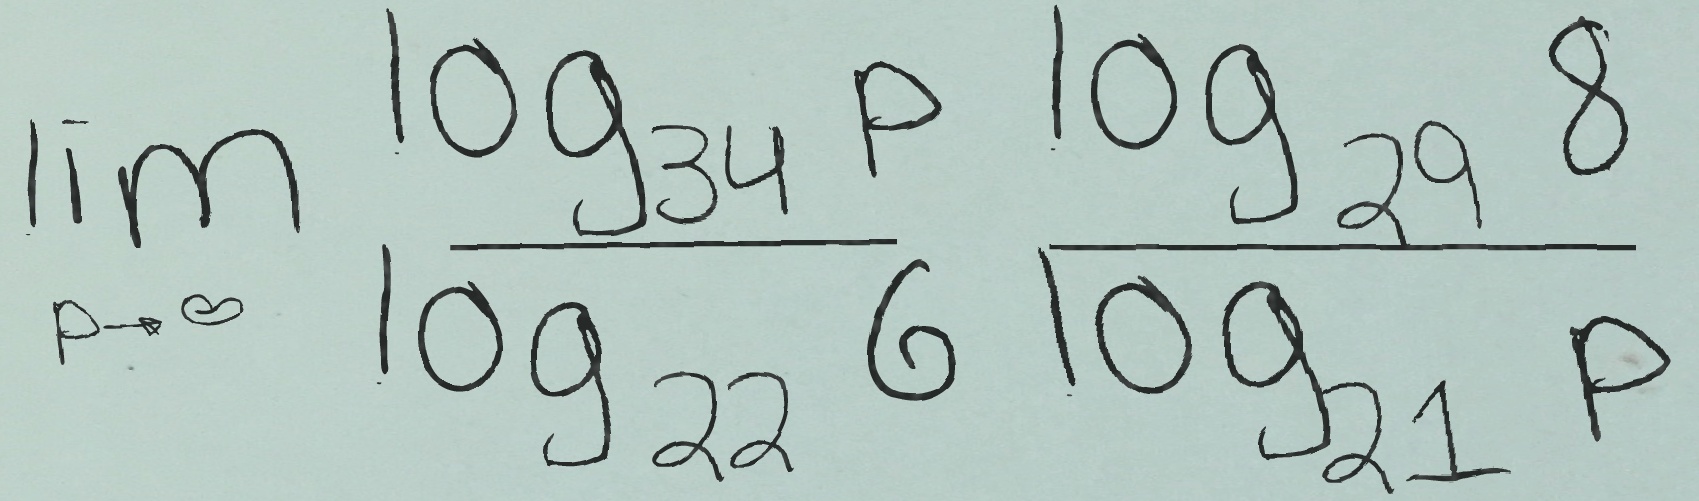 \lim_{p \to \infty} \frac{\log_{34} p}{\log_{22} 6} \frac{\log_{29} 8}{\log_{21} p}